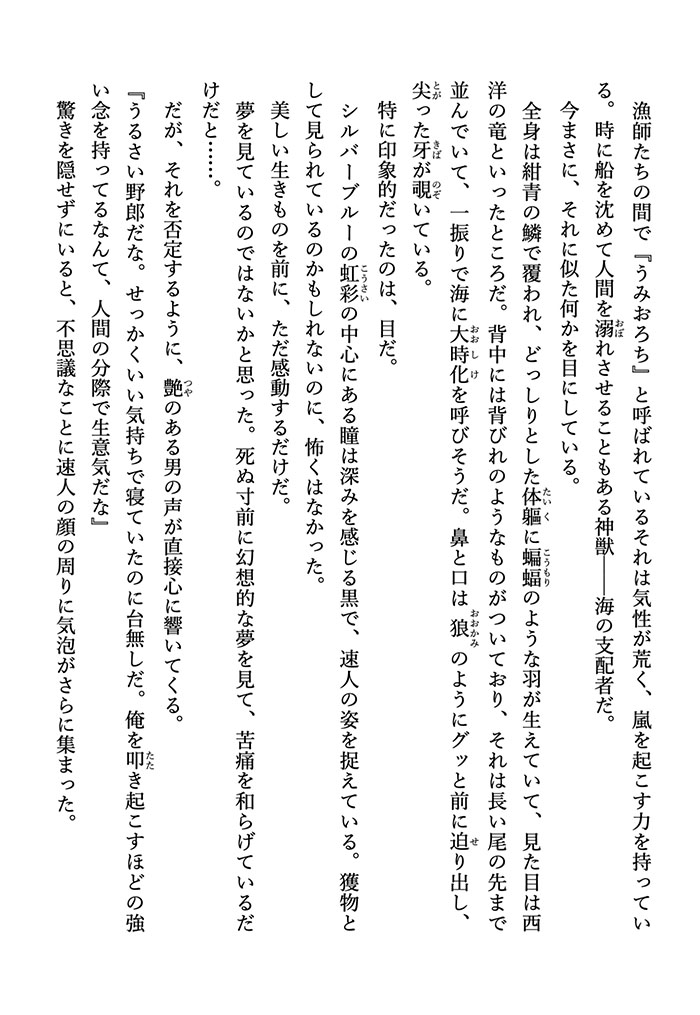 漁師たちの間で『うみおろち』と呼ばれているそれは気性が荒く、嵐を起こす力を持ってい
る。時に船を沈めて人間を溺れさせることもある神獣――海の支配者だ。
今まさに、それに似た何かを目にしている。
全身は紺青の鱗で覆われ、どっしりとした体軀に蝙蝠のような羽が生えていて、見た目は西
洋の竜といったところだ。背中には背びれのようなものがついており、それは長い尾の先まで
並んでいて、一振りで海に大時化を呼びそうだ。鼻と口は狼のようにグッと前に迫り出し、
尖った牙が覗いている。
特に印象的だったのは、目だ。
シルバーブルーの虹彩の中心にある瞳は深みを感じる黒で、速人の姿を捉えている。獲物と
して見られているのかもしれないのに、怖くはなかった。
美しい生きものを前に、ただ感動するだけだ。
夢を見ているのではないかと思った。死ぬ寸前に幻想的な夢を見て、苦痛を和らげているだ
けだと……。
だが、それを否定するように、艶のある男の声が直接心に響いてくる。
『うるさい野郎だな。せっかくいい気持ちで寝ていたのに台無しだ。俺を叩き起こすほどの強
い念を持ってるなんて、人間の分際で生意気だな』
驚きを隠せずにいると、不思議なことに速人の顔の周りに気泡がさらに集まった。